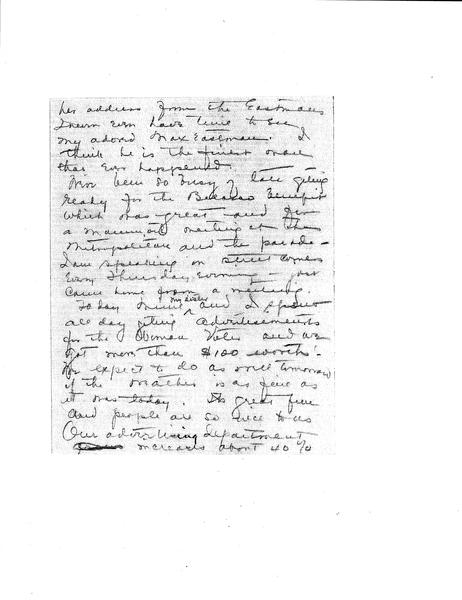 her address from the Eastmans
I never even have time to see
my adored Max Eastman. I
think he is the finest man
that ever happened.
I've been so busy of late getting
ready for the Benefit
which was great and for
a mammoth meeting at the
Metropolitan and the parade -
I am speaking on street corners
every Thursday evening - just
came home from a meeting.
Today my sister and I spent
all day getting advertisements
for the Woman Voter and we
got more than $100 worth!
We expect to do as well tomorrow
if the weather is as fine as
it was today. Its great fun
and people are so nice to us
Our advertising department
increases about 40%